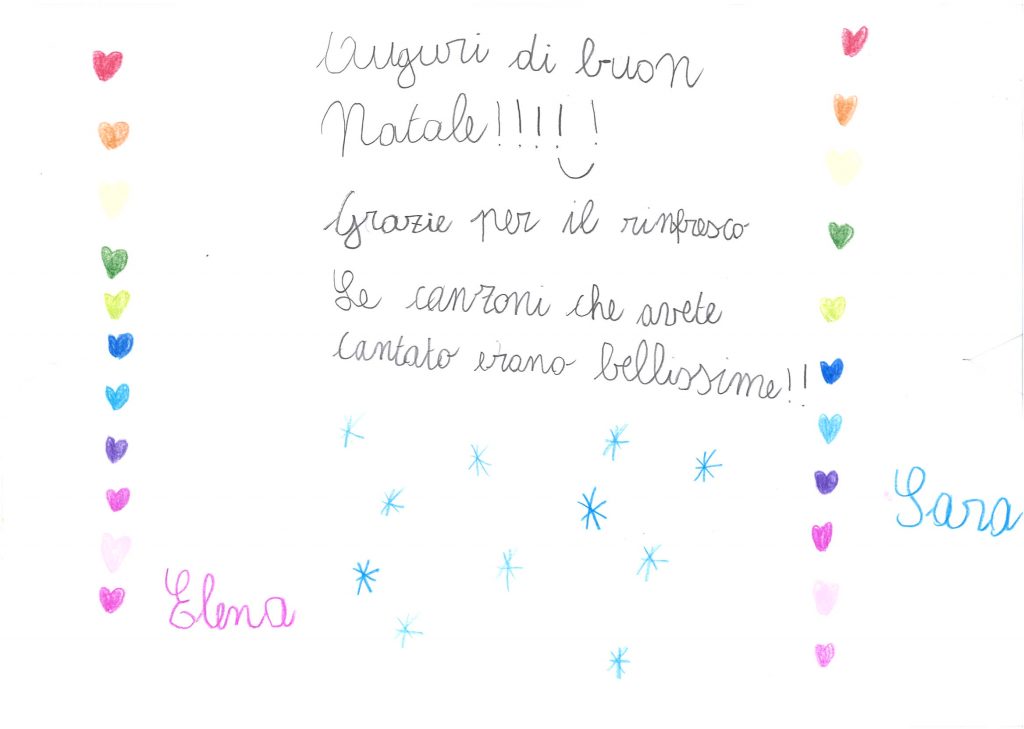 Auguri di buon
Natale!!!!!!
Grazie per il rinfresco
Le canzoni che avete
cantato erano bellissime!!
Sara
Elena